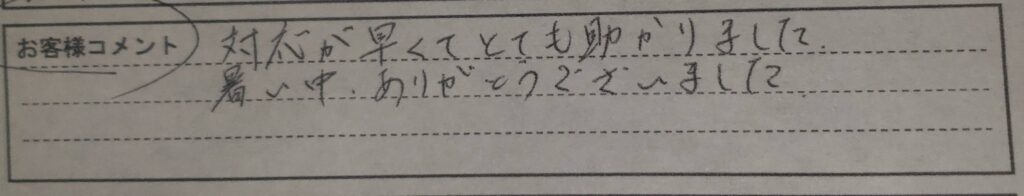 お客様コメント 対応が早くてとても助かりました.
暑い中、ありがとうございました